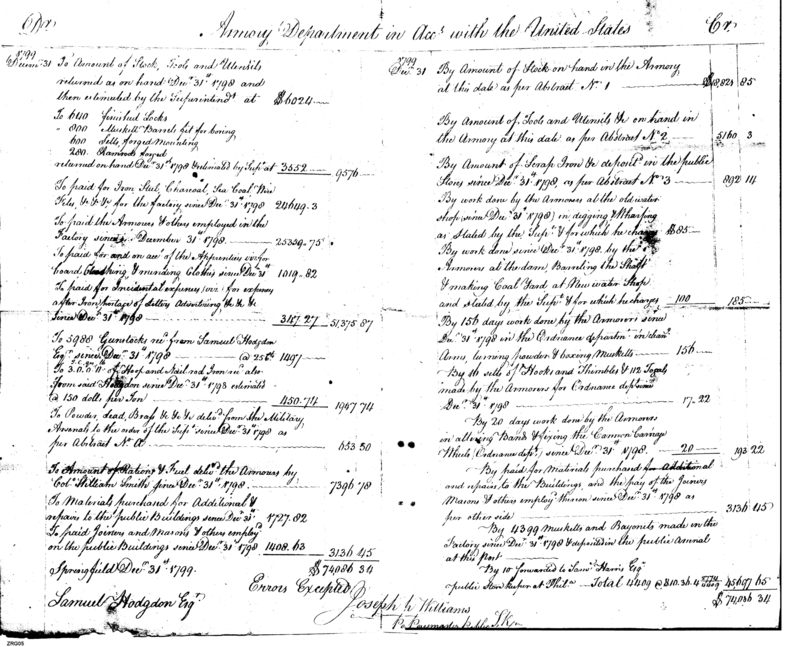 Dr. Armory Department in Accᵗ with the United States Cr.
1799
Decemʳ 31 To Amount of Stock, Tools and Utensils
returned as on hand Decʳ 31ˢᵗ 1798 and
then estimated by the Superintendᵗ at $6024
To 640 finished Locks
" 800 Muskett Barrels fit for boring
600 Setts forged Mounting
280 Ramrods forged
returned on hand Decʳ 31ˢᵗ 1798 & estimated by Supᵗ at 3552 9576
To paid for Iron, Steel, Charcoal, Sea Coal,
Files, &c &c &c for the factory since Decʳ 31ˢᵗ 1798 24649.3
To paid the Armorers & others employed in the
Factory since December 31ˢᵗ 1798 25339.75
To paid for and on accᵗ of the Apprentices viz for
board Cloathing, & mending Cloths since Decʳ 31ˢᵗ 1019.82
To paid for Incidental expences, viz: for expences
after Iron, postage of letters Advertising &c &c &c
Since Decʳ 31ˢᵗ 1798 367.27 51,375 87
To 5988 Gunstocks recᵈ from Samuel Hodgdon
Esqʳ since Decʳ 31ˢᵗ 1798 @ 25ᶜᵗˢ 1497
To 3.0.0.11 of Hoop and Nail rod Iron recᵈ also
from said Hodgdon since Decʳ 31ˢᵗ 1798 estimated
@ 150 dolls per Ton 450.74 1947 74
To Powder, Lead, Brass &c &c &c delivᵈ from the Military
Arsenals to the order of the Supᵗ since Decʳ 31ˢᵗ 1798 as
per Abstract Nᵒ A 653 50
To Amount of Rations & Fuel delivᵈ the Armorers by
Colᵒ William Smith since Decʳ 31ˢᵗ 1798 7396 78
To Materials purchased for Additional &
repairs to the public Buildings since Decʳ 31ˢᵗ 1727.82
To paid Joiners and Masons & others employᵈ
on the public Buildings since Decʳ 31ˢᵗ 1798 1408.63 3136 45
Springfield Decʳ 31ˢᵗ 1799. $74086 34
Errors Excepted
Samuel Hodgdon Esqʳ
Joseph Williams
Paymaster
1799
Decʳ 31 By Amount of Stock on hand in the Armory
at this date as per Abstract Nᵒ 1 85
By Amount of Tools and Utensils &c on hand in
the Armory at this date as per Abstract Nᵒ 2 5160 3
By Amount of Scrap Iron &c depositᵈ in the public
Stores since Decʳ 31ˢᵗ 1798, as per Abstract Nᵒ 3 892 14
By work done by the Armorers at the old water
shop (since Decʳ 31ˢᵗ 1798) in digging & Wharfing
as stated by the Supᵗ & for which he charges $85
By work done since Decʳ 31ˢᵗ 1798 by the
Armorers at the dam, the Shaft
& making Coal Yard at New water Shop
and stated by the Supᵗ & for which he charges 100 185
By 156 days work done by the Armorers since
Decʳ 31ˢᵗ 1798 in the Ordnance departmᵗ in cleanᵍ
Arms, turning powder & boxing Musketts 156
By 16 setts of Hooks and Thimbles & 112
made by the Armorers for Ordnance departmᵗ
Decʳ 31ˢᵗ 1798 17.22
By 20 days work done by the Armorers
in altering Bands & fixing the Cannon Carriage
Wheels (Ordnance depᵗ) since Decʳ 31ˢᵗ 1798. 20 193 22
By paid for Materials purchased for Additional
and repairs to the Buildings, and the pay of the Joiners
Masons & others employᵈ thereon since Decʳ 31ˢᵗ 1798 as
per other side 3136 45
By 4399 Musketts and Bayonets made in the
Factory since Decʳ 31ˢᵗ 1798 & deposited in the public Arsenal
at this Post
By 10 forwarded to Samˡ Harris Esqʳ
public Store keeper at Philᵃ Total 4409 @ $10.36.4 45697 65
$74,086 34
ZRG05